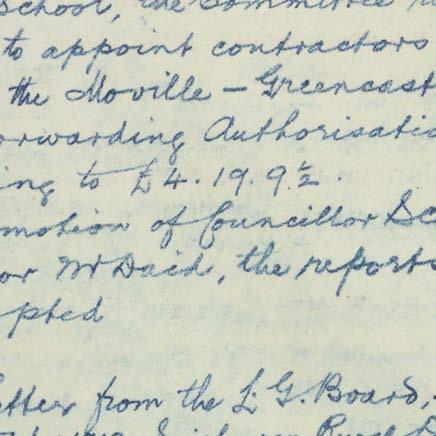 School, the Committee
to appoint contractors
the Moville - Greencast
orwarding Authorisatio
ing to £4.19.9½
motion of Councillor Sc
or McDaid, the reports
pted
etter from the L.G. Board,